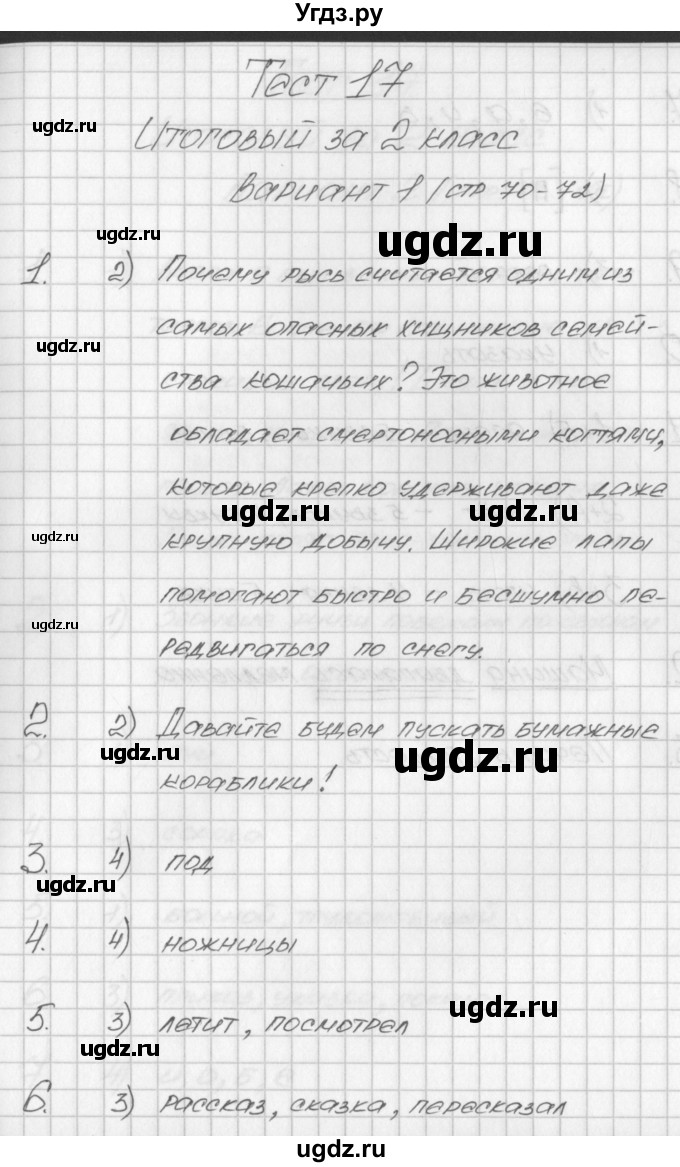 Угдз.ру
Тест 17
Итоговый за 2 класс
Вариант 1 (стр 70-72)
1. 2) Почему рысь считается одним из
самых опасных хищников семей-
ства кошачьих? Это животное
обладает смертоносными когтями,
которые крепко удерживают даже
крупную добычу. Широкие лапы
помогают быстро и бесшумно пе-
редвигаться по снегу.
2. 2) Давайте будем пускать бумажные
кораблики!
3. 4) под
4. 4) ножницы
5. 3) летит, посмотрел
6. 3) рассказ, сказка, пересказал
ugdz.ru
ugdz.ru
ugdz.ru
ugdz.ru
ugdz.ru
ugdz.ru
ugdz.ru
ugdz.ru
ugdz.ru
ugdz.ru
ugdz.ru
ugdz.ru
ugdz.ru
ugdz.ru